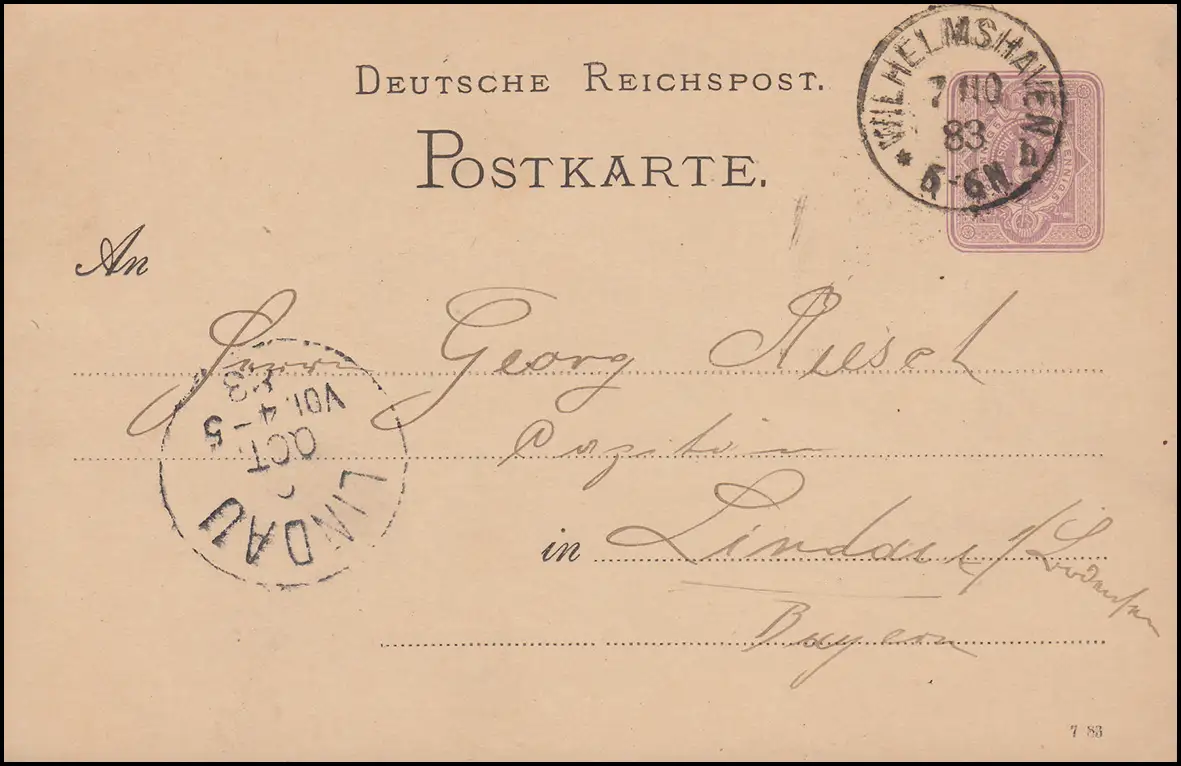 DEUTSCHE REICHSPOST.
POSTKARTE.
* WILHELMSHAVEN a
7 10
83
5-6N
PFENNIG
An
Herrn Georg Riesch
in Lindau / Bodensee
Bayern
LINDAU
OCT
VOR. 4-5
83
7 83